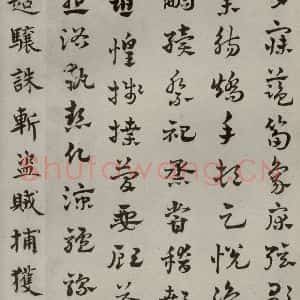 夕寐藍筍象床弦歌
舉觴矯手頓足悅豫
嗣續祭祀烝嘗稽顙
恐惶牋牒簡要顧答
想浴執熱願涼驢騾
超驤誅斬盜賊捕獲
Shufawang.CN